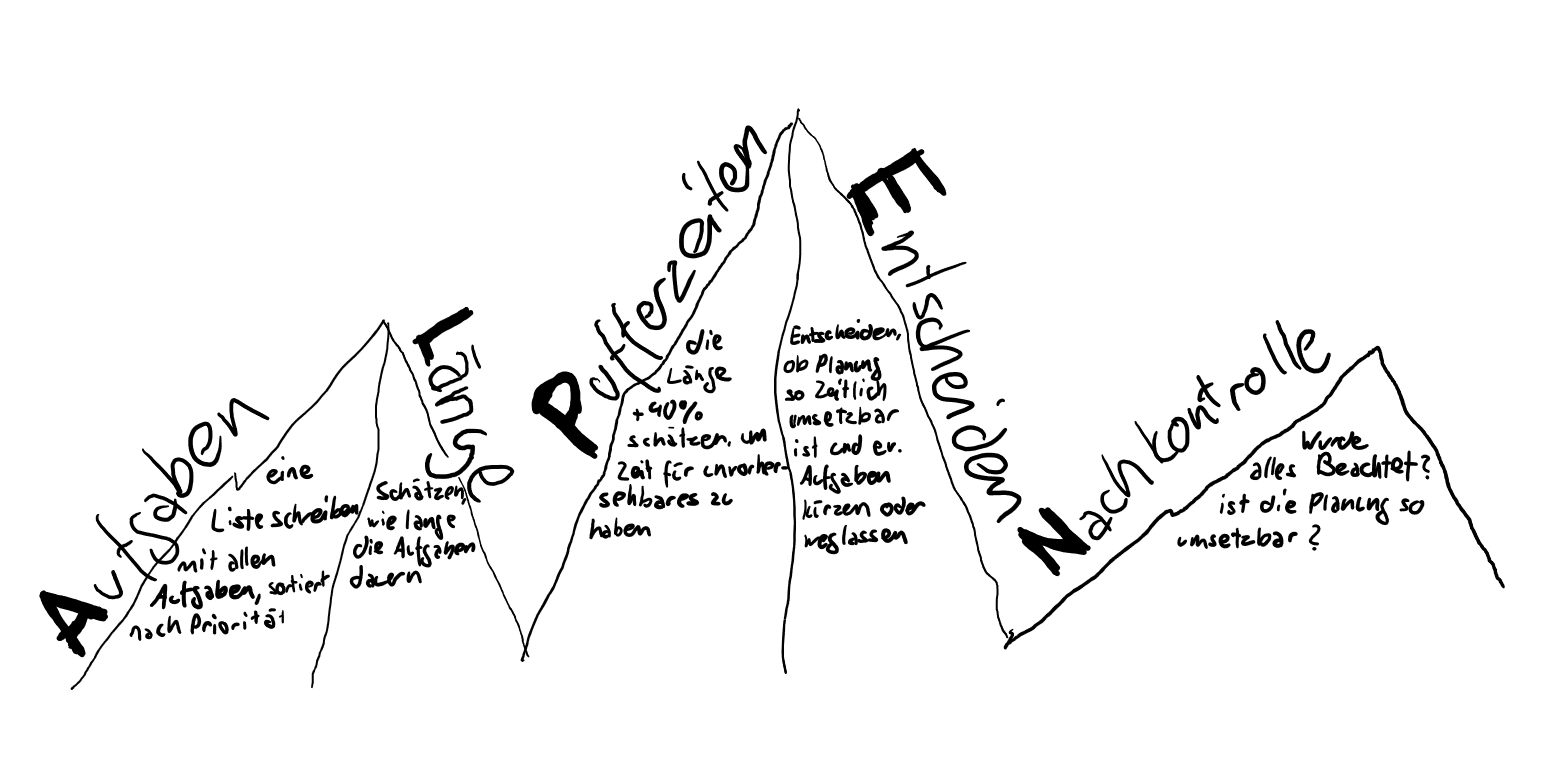 Aufgaben
eine
Liste schreiben
mit allen
Aufgaben, sortiert
nach Priorität
Länge
Schätzen,
wie lange
die Aufgaben
dauern
Pufferzeiten
die
Länge
+40%
schätzen, um
Zeit für unvorher-
sehbares zu
haben
Entscheiden
Entscheiden,
ob Planung
so Zeitlich
umsetzbar
ist und ev.
Aufgaben
kürzen oder
weglassen
Nachkontrolle
Wurde
alles Beachtet?
ist die Planung so
umsetzbar?